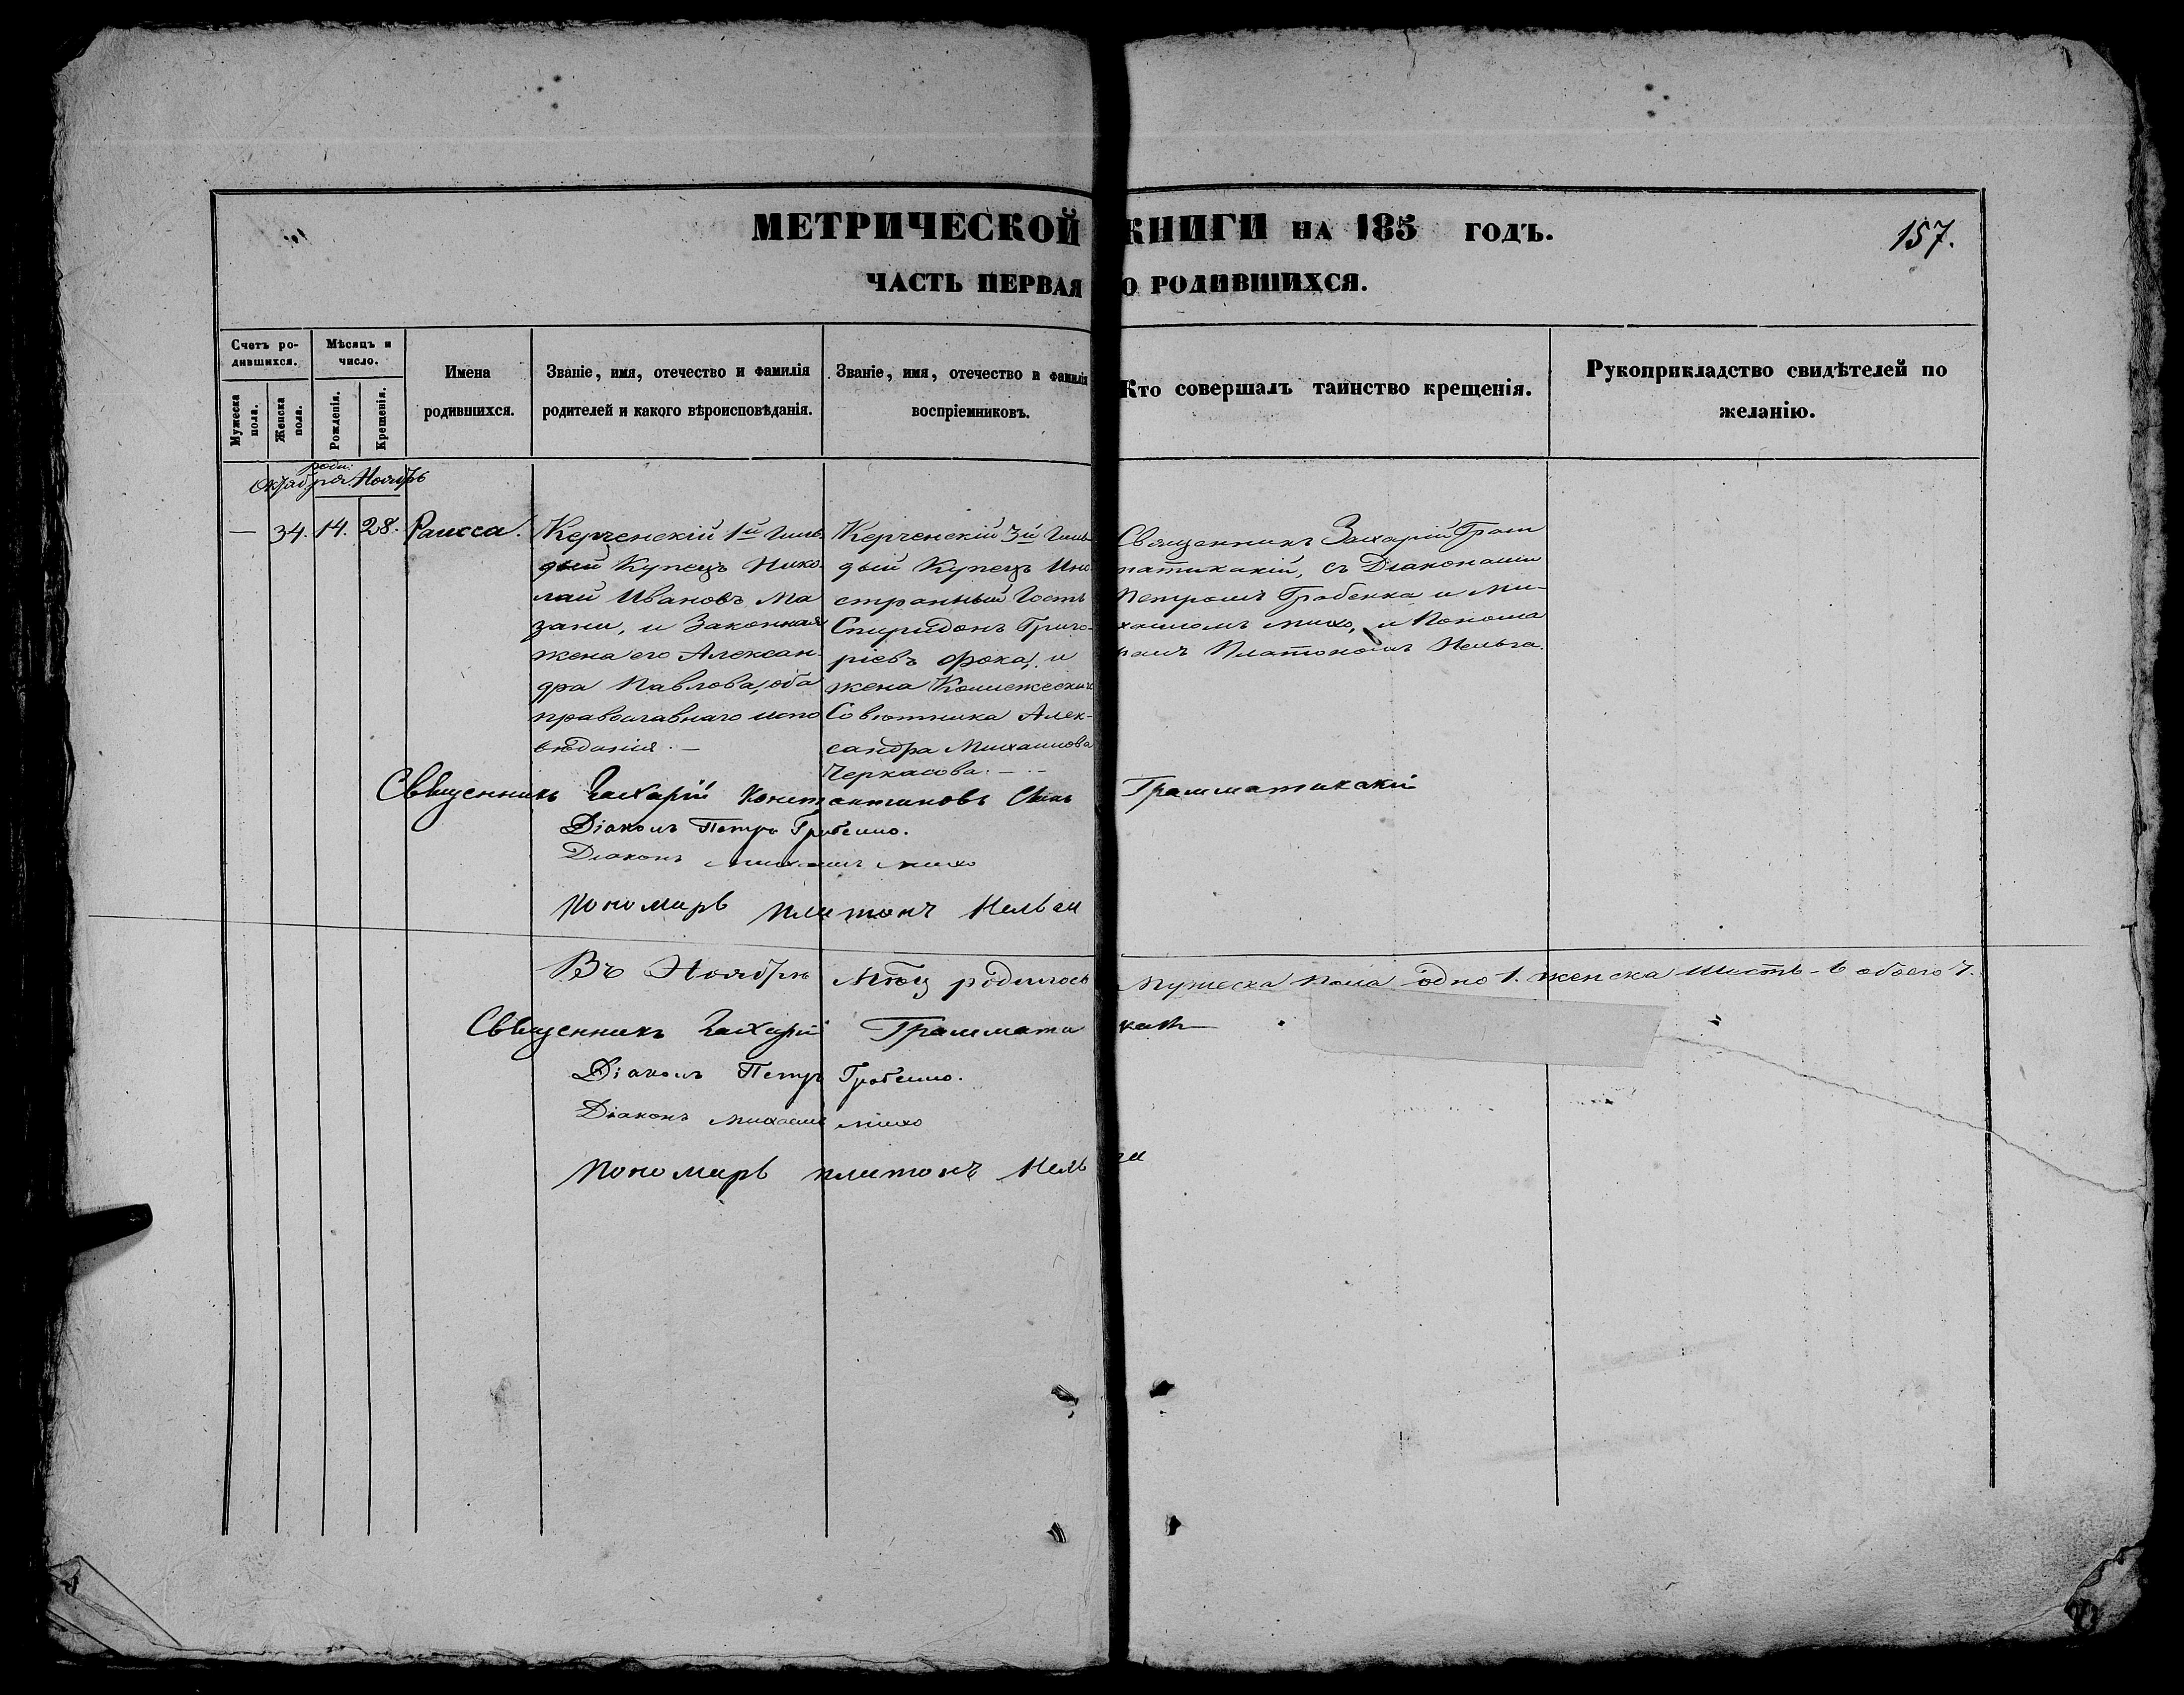 МЕТРИЧЕСКОЙ КНИГИ НА 185 ГОДЪ.
157.
ЧАСТЬ ПЕРВАЯ О РОДИВШИХСЯ.
Счетъ ро-
дившихся.
Мужеска пола.
Женска пола.
Мѣсяцъ и
число.
Рожденія.
Крещенія.
Имена
родившихся.
Званіе, имя, отечество и фамилія
родителей и какого вѣроисповѣданія.
Званіе, имя, отечество и фамилія
воспріемниковъ.
Кто совершалъ таинство крещенія.
Рукоприкладство свидѣтелей по
желанію.
роди.
Октября. Ноябрь
— 34. 14. 28. Раисса.
Керченскій 1й Гиль
дый Купецъ Нико
лай Ивановъ Ма
зани, и Законная
жена его Алексан
дра Павлова, оба
православнаго испо
вѣданія. —
Керченскій 3й Гиль
дый Купецъ Ино
странный Гость
Спиридонъ Григо-
ріевъ Фока, и
жена Коллежскаго
Совѣтника Алек-
сандра Михаилова
Черкасова. —
Священникъ Захарій Грам
матикакій, съ Діаконами
Петромъ Гробенка и Ми-
хаиломъ Михо, и Понома
ремъ Платономъ
Священникъ Захарій Константиновъ Сынъ Грамматикакій
Діаконъ Петръ
Діаконъ Михаилъ Михо
Пономарь Платонъ
Въ Ноябрѣ Мѣсц родилось Мужеска пола одно 1. женска шесть - 6 обоего 7.
Священникъ Захарій Грамматикаки
Діаконъ Петръ
Діаконъ Михаилъ Михо
Пономарь Платонъ